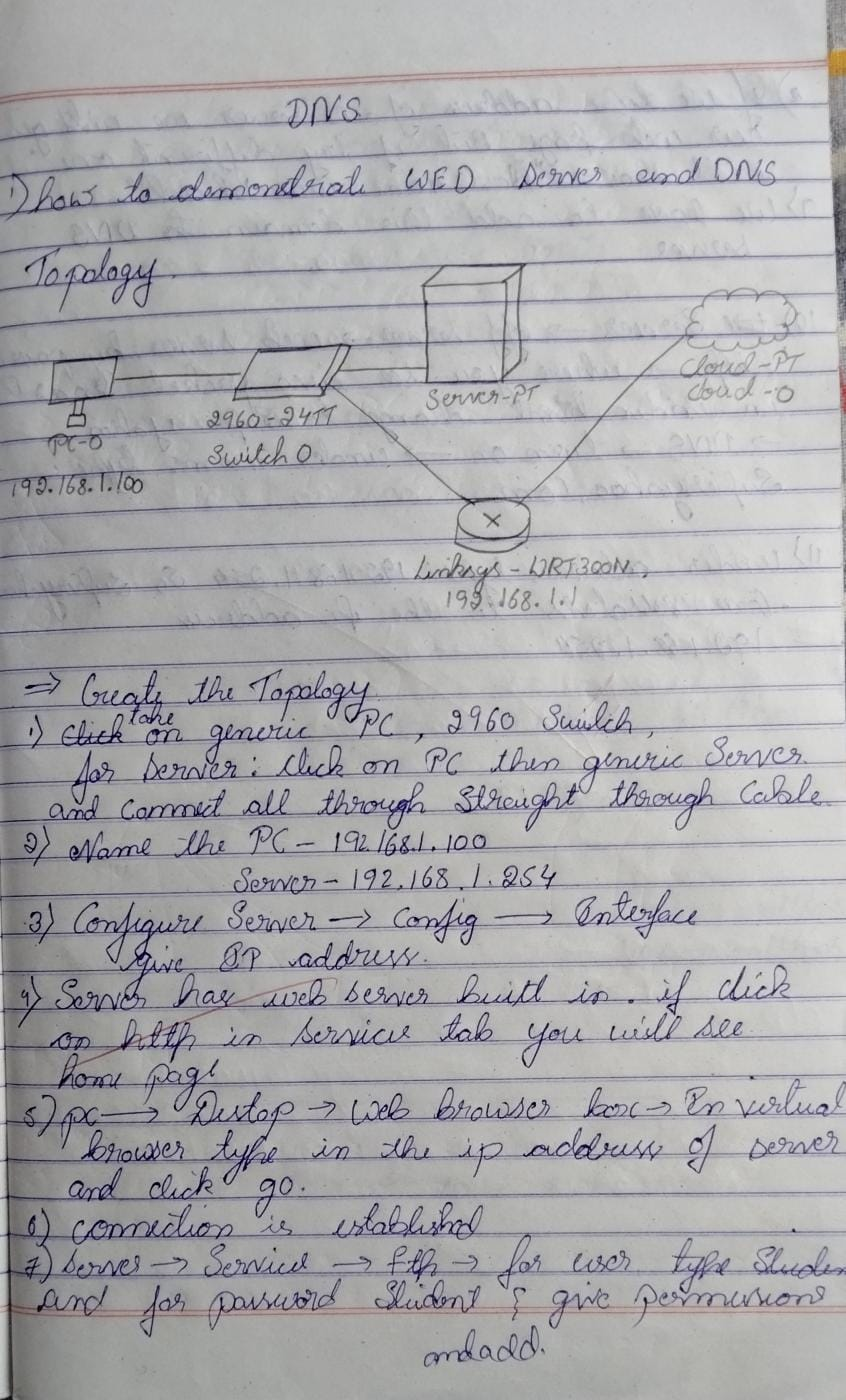 DNS
1) how to demonstrate WED Server and DNS
Topology.
Server-PT
Cloud-PT
cloud-0
2960-24TT
Switch 0
PC-0
192.168.1.100
Linksys-WRT300N,
192.168.1.1
⇒ Create the Topology
take
1) Click on generic PC, 2960 Switch,
for Server: Click on PC then generic Server.
and connect all through Straight through Cable.
2) Name the PC - 192.168.1.100
Server - 192.168.1.254
3) Configure Server → Config → Interface
give IP address.
4) Server has web server built in. if click
on http in service tab you will see
home page
5) pc → Destop → web browser box → In virtual
browser type in the ip address of server
and click go.
6) connection is established
7) server → Service → ftp → for user type Studen
and for password Student & give permissions
and add.